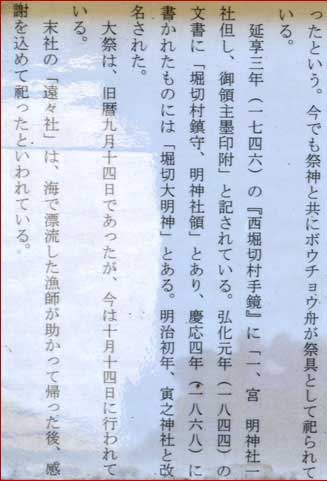 ったという。今でも祭神と共にボウチョウ舟が祭具として祀られて
いる。
延享三年(一七四六)の『西堀切村手鏡』に「一、宮 明神社一
社但し、御領主墨印附」と記されている。弘化元年(一八四四)の
文書に「堀切村鎮守、明神社領」とあり、慶応四年(一八六八)に
書かれたものには「堀切大明神」とある。明治初年、寅之神社と改
名された。
大祭は、旧暦九月十四日であったが、今は十月十四日に行われて
いる。
末社の「遠々社」は、海で漂流した漁師が助かって帰った後、感
謝を込めて祀ったといわれている。